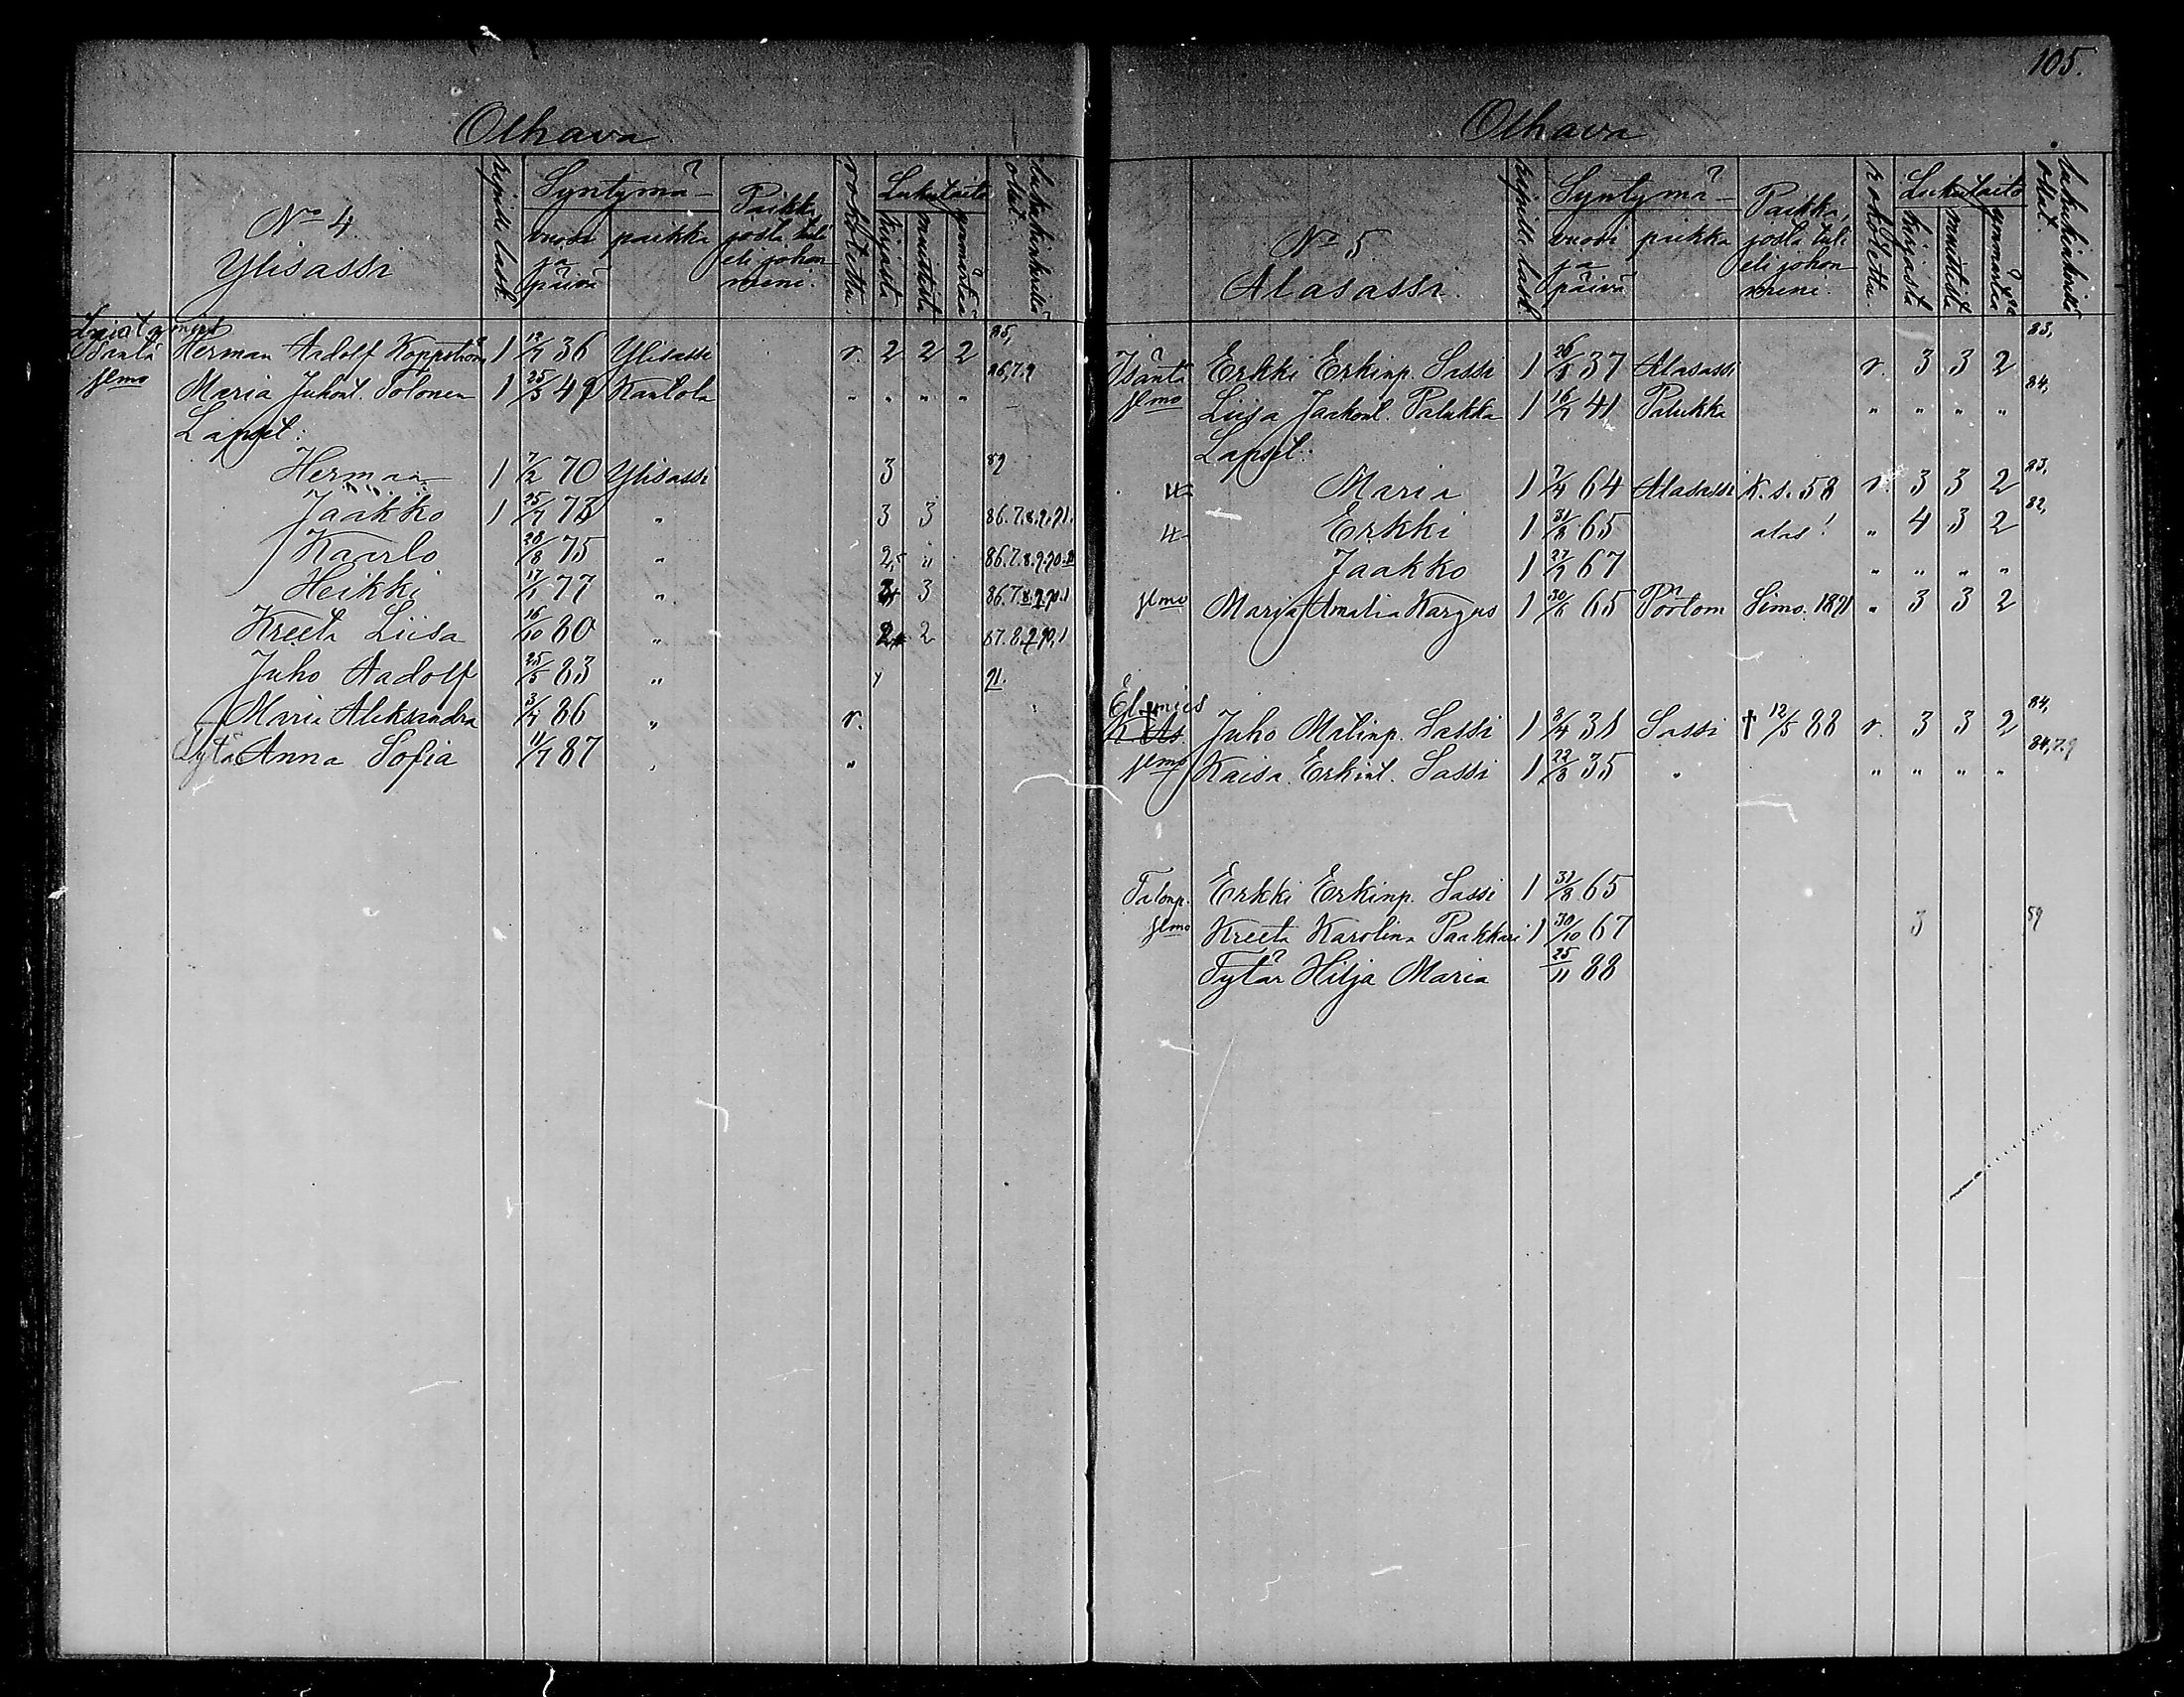 105.
Olhava
N:o 4
Ylisassi
ripille lask.
Syntymä-
vuosi ja päivä
paikka
Paikka, josta tuli eli johon meni.
rokotettu.
Lukutaito
kirjasta
muistista
ymmärtää
lukukinkerillä ollut.
Isäntä Herman Aadolf Koppström 1 12/7 36 Ylisassi r. 2 2 2 85,
Emo Maria Juhont. Tolonen 1 25/3 49 Kantola " " " " 86,7.9
Lapset:
Herman 1 7/2 70 Ylisassi 3 89
Jaakko 1 25/7 73 " 3 3 86.7.8.9.91.
Kaarlo 28/8 75 " 2 " 86.7.8.9.90.
Heikki 17/1 77 " 3 86.7.8.9.90.1
Kreeta Liisa 16/10 80 " 2 2 87.8.9.90,1
Juho Aadolf 25/5 83 " 91.
Maria Aleksandra 3/4 86 " r.
Tytär Anna Sofia 11/7 87 , "
Olhava
N:o 5.
Alasassi.
ripille lask.
Syntymä-
vuosi ja päivä
paikka
Paikka, josta tuli eli johon meni.
rokotettu.
Lukutaito
kirjasta
muistista
ymmärtää
lukukinkerillä ollut.
Isäntä Erkki Erkinp. Sassi 1 26/8 37 Alasassi r. 3 3 2 83,
Emo Liisa Jaakont. Palukka 1 16/7 41 Palukka " " " " 84,
Lapset:
Maria 1 7/4 64 Alasassi K.s. 58 r. 3 3 2 83,
Erkki 1 31/8 65 alas! " 4 3 2 82,
Jaakko 1 27/7 67 " " " "
Emo Maria Amalia Kargus 1 30/6 65 Pörtom Simo. 1891 " 3 3 2
El.mies Juho Matinp. Sassi 1 3/4 38 Sassi † 12/5 88 r. 3 3 2 84,
Emo Kaisa Erkint. Sassi 1 22/8 35 " " " " " 84,7.9
Talonp. Erkki Erkinp. Sassi 1 31/8 65
Emo Kreeta Karolina Paakkari 1 30/10 67 3 59
Tytär Hilja Maria 25/11 88